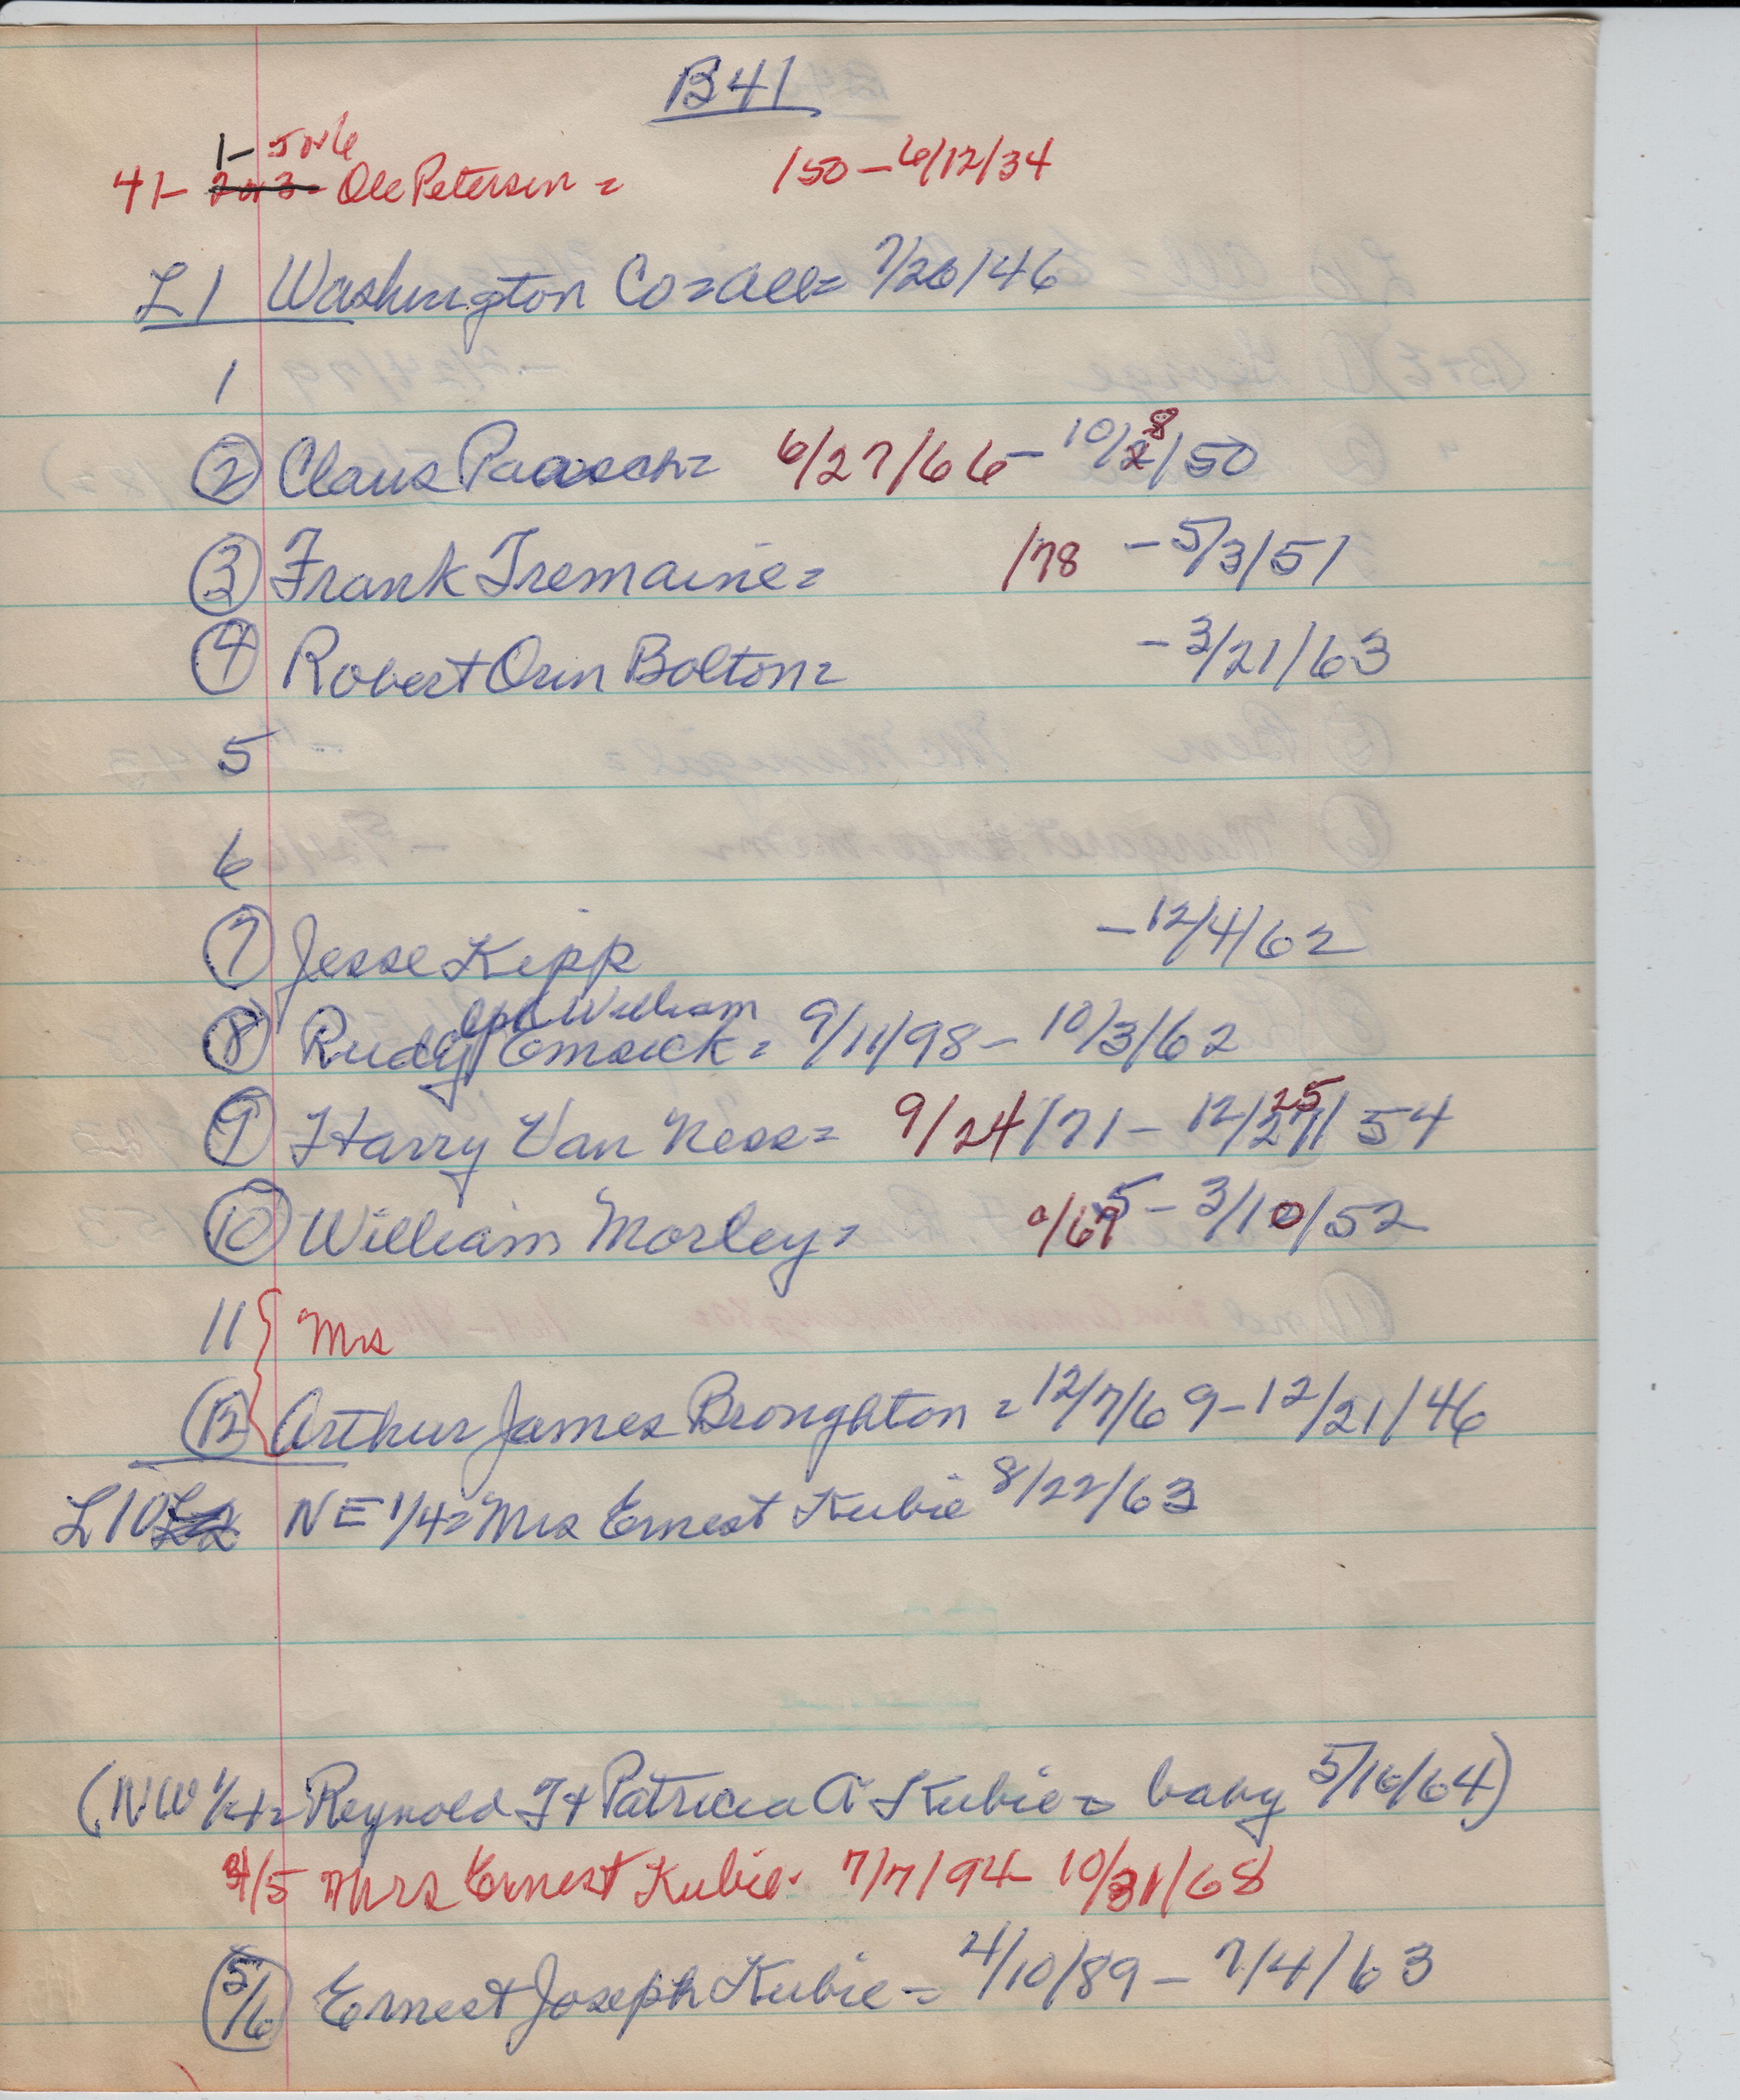 B41
1- 5 or 6
41- 2 or 3- Ole Petersen = /50 - 6/12/34
L1 Washington Co = all = 7/26/46
1
2 Claus Paasch = 6/27/66 - 10/28/50
3 Frank Tremaine = /78 - 5/3/51
4 Robert Orin Bolton = - 3/21/63
5
6
7 Jesse Kipp - 12/4/62
William
8 Rudy Emsick = 9/11/98 - 10/3/62
25
9 Harry Van Ness = 9/24/71 - 12/27/54
10 William Morley = /67 5 - 3/10/52
11 { Mrs
12 Arthur James Broughton = 12/7/69 - 12/21/46
L10 L2 NE 1/4 = Mrs Ernest Kubie 8/22/63
(NW 1/4 = Reynold J + Patricia A Kubie = baby 5/16/64)
4/5 Mrs Ernest Kubie - 7/7/94 - 10/31/68
5/6 Ernest Joseph Kubie = 4/10/89 - 7/4/63